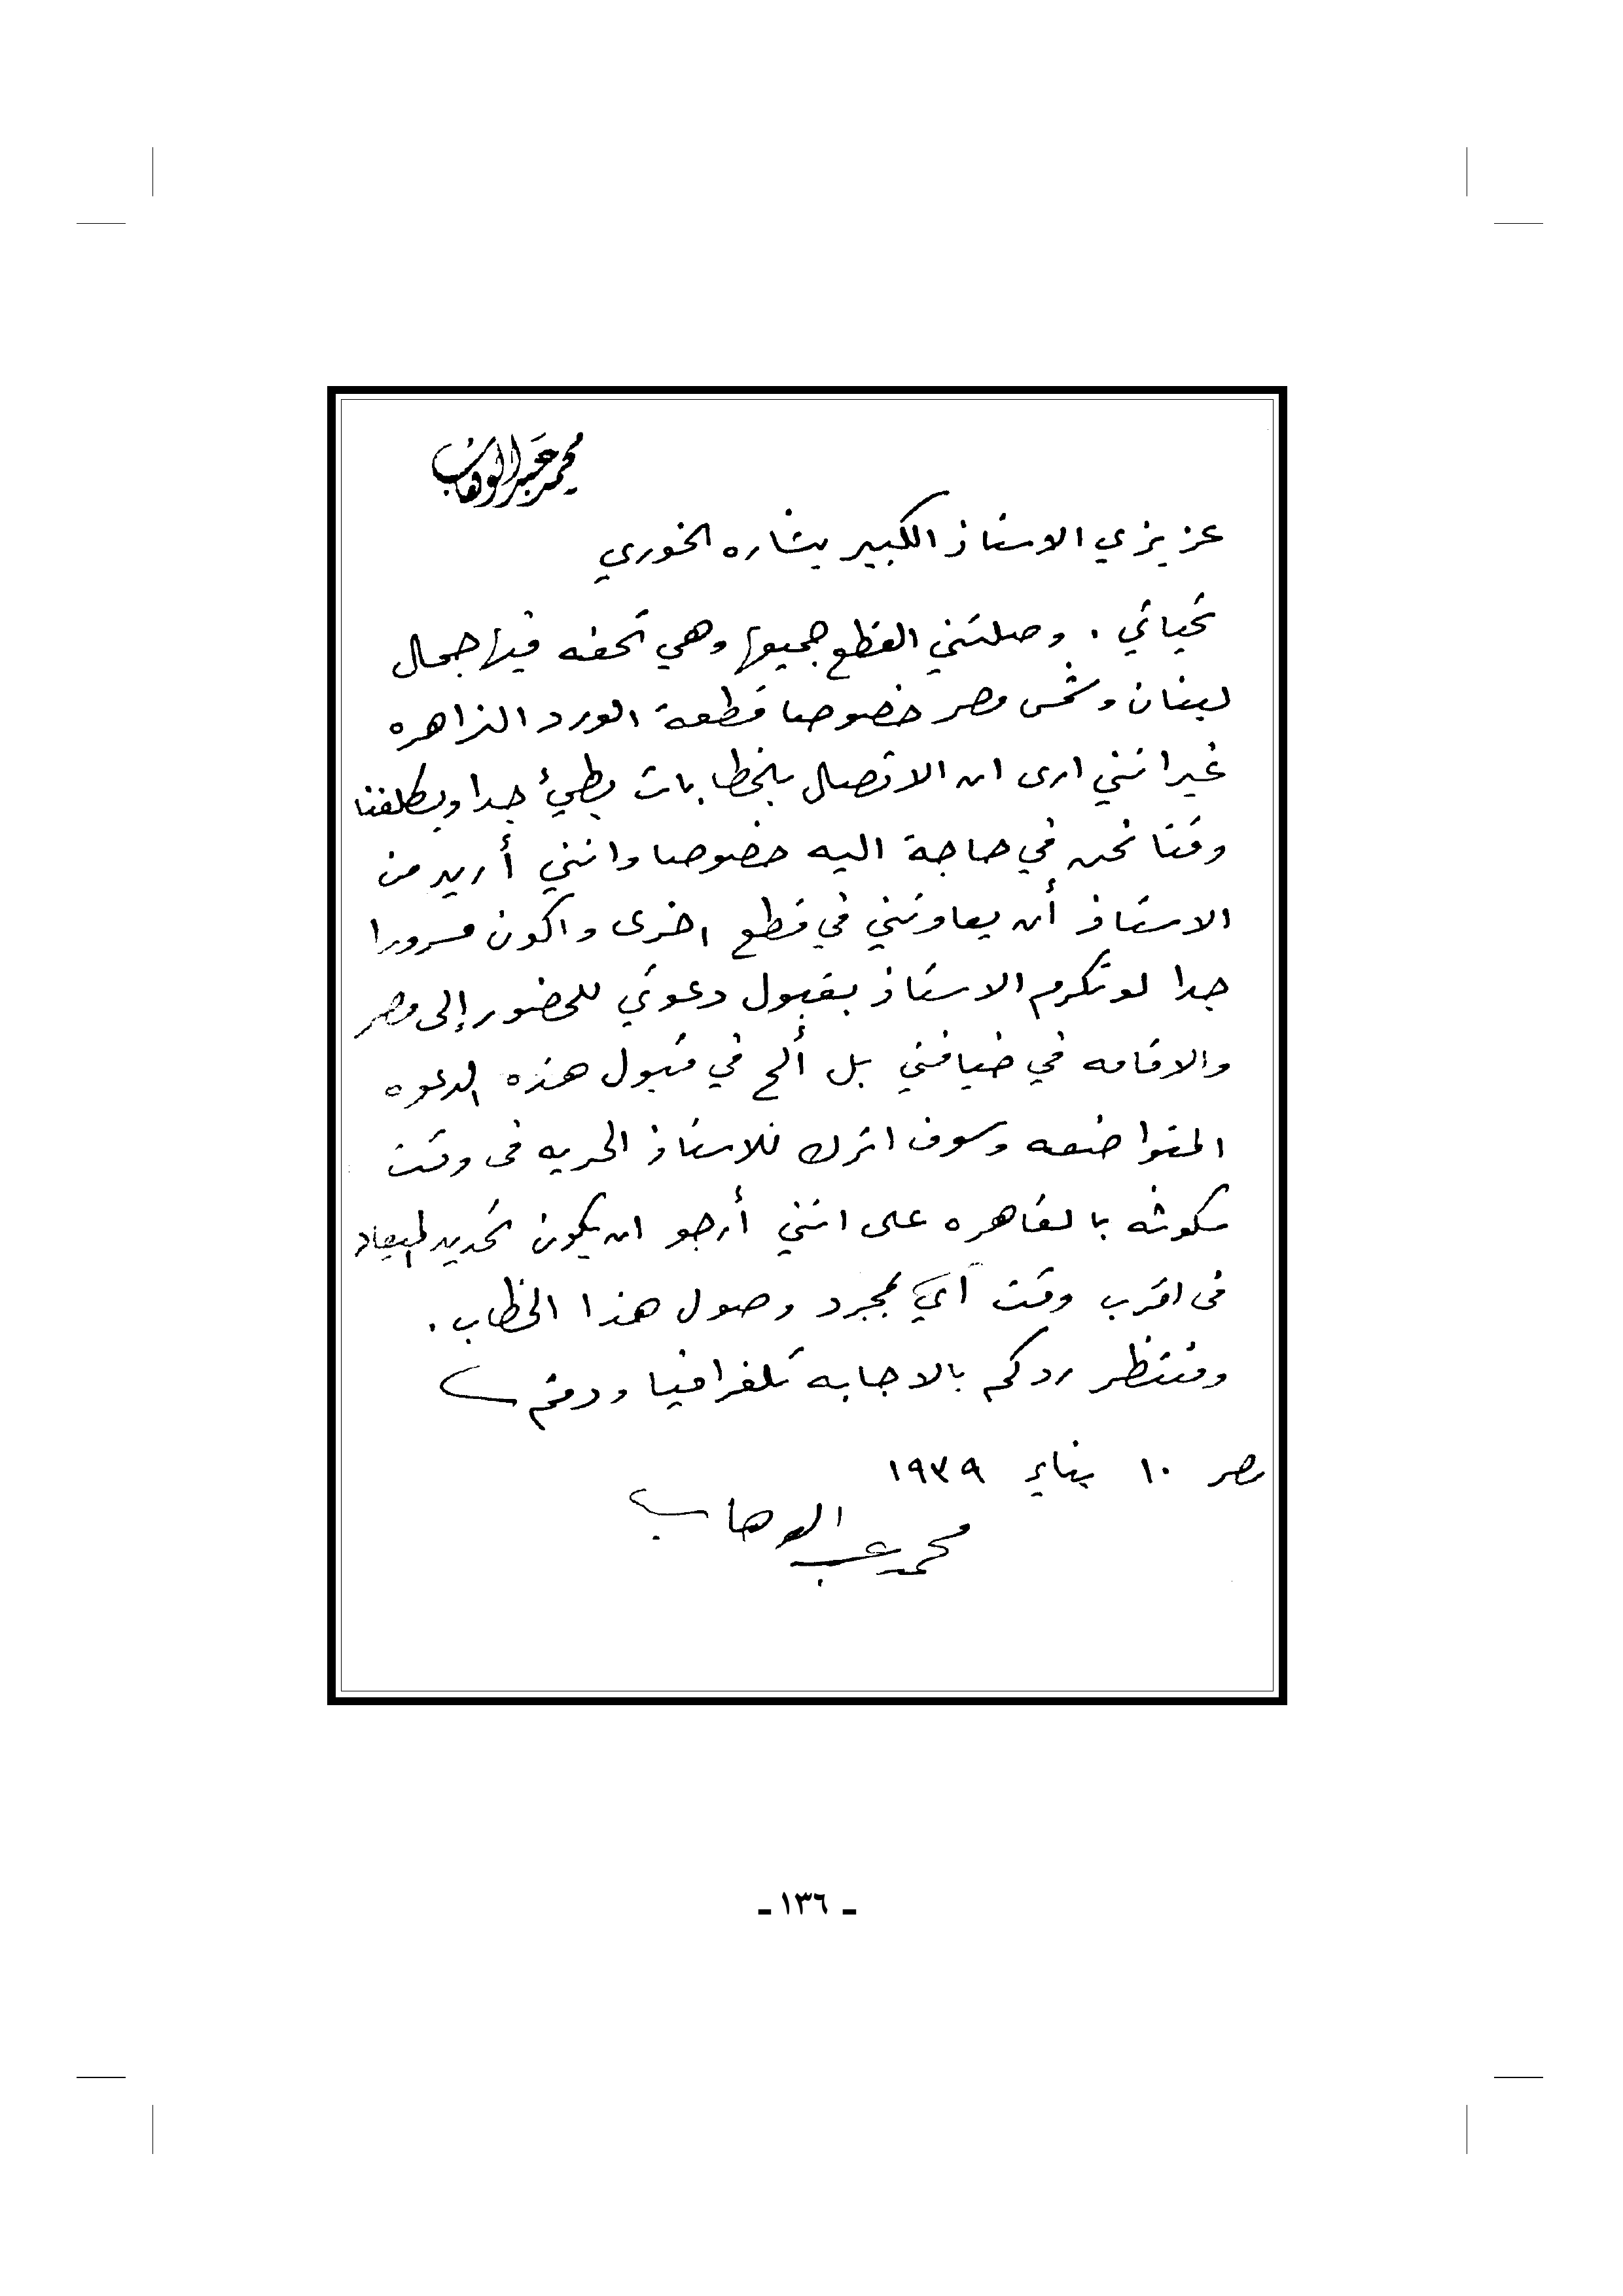 محمد عبد الوهاب
عزيزي الاستاذ الكبير بشاره الخوري
تحياتي . وصلتني القطع جميعها وهي تحفه فيها جمال
لبنان وشمس مصر خصوصا قطعة الورد الزاهره
غير انني ارى ان الاتصال بالخطابات بطيئ جدا ويكلفنا
وقتا نحن في حاجة اليه خصوصا وانني أريد من
الاستاذ أن يعاونني في قطع اخرى واكون مسرورا
جدا لو تكرم الاستاذ بقبول دعوتي للحضور إلى مصر
والاقامه في ضيافتي بل ألح في قبول هذه الدعوه
المتواضعه وسوف اترك للاستاذ الحريه فى وقت
مكوثه بالقاهره على انني أرجو ان يكون تحديد الميعاد
فى اقرب وقت أي بمجرد وصول هذا الخطاب .
ومنتظر ردكم بالاجابه تلغرافيا ودمتم
مصر ١٠ يناير ١٩٣٩
محمد عبد الوهاب
ـ ١٣٦ ـ